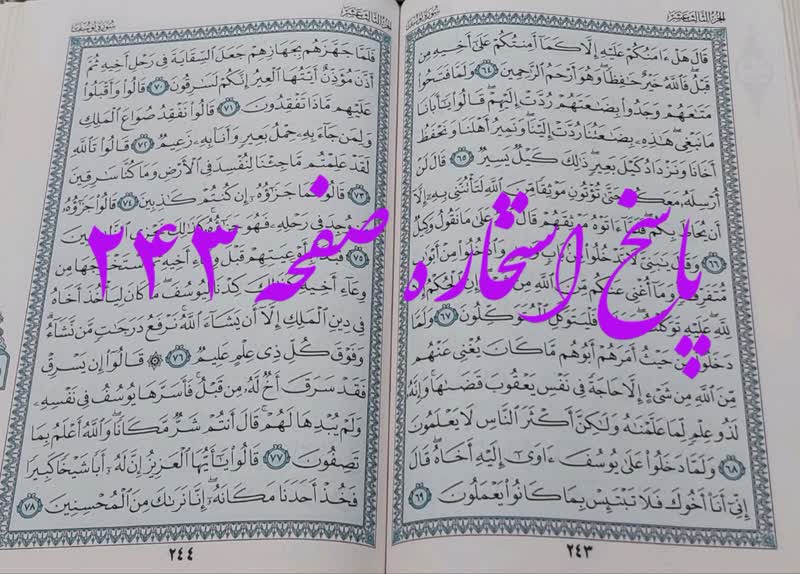 الجزء الثالث عشر
سورة يوسف
قَالَ هَلْ ءَامَنُكُمْ عَلَيْهِ إِلَّا كَمَآ أَمِنتُكُمْ عَلَىٰٓ أَخِيهِ مِن
قَبْلُ فَٱللَّهُ خَيْرٌ حَٰفِظًا وَهُوَ أَرْحَمُ ٱلرَّٰحِمِينَ ٦٤ وَلَمَّا فَتَحُوا۟
مَتَٰعَهُمْ وَجَدُوا۟ بِضَٰعَتَهُمْ رُدَّتْ إِلَيْهِمْ قَالُوا۟ يَٰٓأَبَانَا
مَا نَبْغِى هَٰذِهِۦ بِضَٰعَتُنَا رُدَّتْ إِلَيْنَا وَنَمِيرُ أَهْلَنَا وَنَحْفَظُ
أَخَانَا وَنَزْدَادُ كَيْلَ بَعِيرٍ ذَٰلِكَ كَيْلٌ يَسِيرٌ ٦٥ قَالَ لَنْ
أُرْسِلَهُۥ مَعَكُمْ حَتَّىٰ تُؤْتُونِ مَوْثِقًا مِّنَ ٱللَّهِ لَتَأْتُنَّنِى بِهِۦٓ إِلَّآ
أَن يُحَاطَ بِكُمْ فَلَمَّآ ءَاتَوْهُ مَوْثِقَهُمْ قَالَ عَلَىٰ مَا نَقُولُ وَكِيلٌ
٦٦ وَقَالَ يَٰبَنِىَّ لَا تَدْخُلُوا۟ مِنۢ بَابٍ وَٱدْخُلُوا۟ مِنْ أَبْوَٰبٍ
مُّتَفَرِّقَةٍ وَمَآ أُغْنِى عَنكُم مِّنَ ٱللَّهِ مِن إِنِ ٱلْحُكْمُ إِلَّا
لِلَّهِ عَلَيْهِ تَوَكَّلْتُ فَلْيَتَوَكَّلِ ٱلْمُتَوَكِّلُونَ ٦٧ وَلَمَّا
دَخَلُوا۟ مِنْ حَيْثُ أَمَرَهُمْ أَبُوهُم مَّا كَانَ يُغْنِى عَنْهُم
مِّنَ ٱللَّهِ مِن شَىْءٍ إِلَّا حَاجَةً فِى نَفْسِ يَعْقُوبَ قَضَىٰهَا وَإِنَّهُۥ
لَذُو عِلْمٍ لِّمَا عَلَّمْنَٰهُ وَلَٰكِنَّ أَكْثَرَ ٱلنَّاسِ لَا يَعْلَمُونَ
٦٨ وَلَمَّا دَخَلُوا۟ عَلَىٰ يُوسُفَ ءَاوَىٰٓ إِلَيْهِ أَخَاهُ قَالَ
إِنِّىٓ أَنَا۠ أَخُوكَ فَلَا تَبْتَئِسْ بِمَا كَانُوا۟ يَعْمَلُونَ ٦٩
٢٤٣
الجزء الثالث عشر
سورة يوسف
فَلَمَّا جَهَّزَهُم بِجَهَازِهِمْ جَعَلَ ٱلسِّقَايَةَ فِى رَحْلِ أَخِيهِ ثُمَّ
أَذَّنَ مُؤَذِّنٌ أَيَّتُهَا ٱلْعِيرُ إِنَّكُمْ لَسَٰرِقُونَ ٧٠ قَالُوا۟ وَأَقْبَلُوا۟
عَلَيْهِم مَّاذَا تَفْقِدُونَ ٧١ قَالُوا۟ نَفْقِدُ صُوَاعَ ٱلْمَلِكِ
وَلِمَن جَآءَ بِهِۦ حِمْلُ بَعِيرٍ وَأَنَا۠ بِهِۦ زَعِيمٌ ٧٢ قَالُوا۟ تَٱللَّهِ
لَقَدْ عَلِمْتُم مَّا جِئْنَا لِنُفْسِدَ فِى ٱلْأَرْضِ وَمَا كُنَّا سَٰرِقِينَ
٧٣ قَالُوا۟ فَمَا جَزَٰٓؤُهُۥٓ إِن كُنتُمْ كَٰذِبِينَ ٧٤ قَالُوا۟ جَزَٰٓؤُهُۥ
مَن وُجِدَ فِى رَحْلِهِۦ فَهُوَ جَزَٰٓؤُهُۥ كَذَٰلِكَ نَجْزِى ٱلظَّٰلِمِينَ
٧٥ بِأَوْعِيَتِهِمْ قَبْلَ وِعَآءِ أَخِيهِ ٱسْتَخْرَجَهَا مِن
وِعَآءِ أَخِيهِ كَذَٰلِكَ كِدْنَا لِيُوسُفَ مَا كَانَ لِيَأْخُذَ أَخَاهُ
فِى دِينِ ٱلْمَلِكِ إِلَّآ أَن يَشَآءَ ٱللَّهُ نَرْفَعُ دَرَجَٰتٍ مَّن نَّشَآءُ
وَفَوْقَ كُلِّ ذِى عِلْمٍ عَلِيمٌ ٧٦ ۞ قَالُوٓا۟ إِن يَسْرِقْ
فَقَدْ سَرَقَ أَخٌ لَّهُۥ مِن قَبْلُ فَأَسَرَّهَا يُوسُفُ فِى نَفْسِهِۦ
وَلَمْ يُبْدِهَا لَهُمْ قَالَ أَنتُمْ شَرٌّ مَّكَانًا وَٱللَّهُ أَعْلَمُ بِمَا
تَصِفُونَ ٧٧ قَالُوا۟ يَٰٓأَيُّهَا ٱلْعَزِيزُ إِنَّ لَهُۥٓ أَبًا شَيْخًا كَبِيرًا
فَخُذْ أَحَدَنَا مَكَانَهُۥٓ إِنَّا نَرَىٰكَ مِنَ ٱلْمُحْسِنِينَ ٧٨
٢٤٤
پاسخ استخاره صفحه ۲۴۳